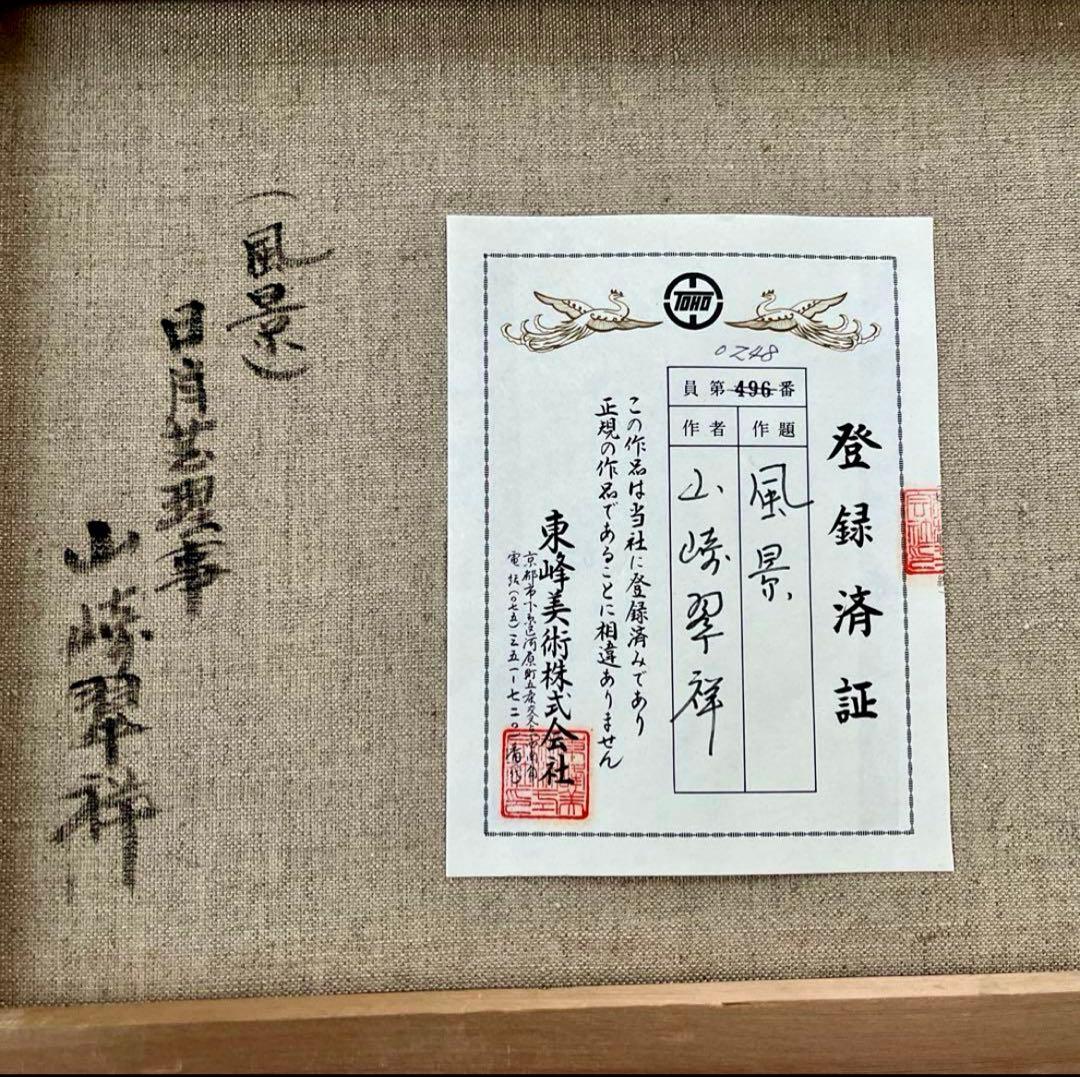 TOHO
0248
員第496番
作題
風景
作者
山崎翠祥
登録済証
この作品は当社に登録済みであり
正規の作品であることに相違ありません
東峰美術株式会社
京都市下京区河原町五条
電話(〇七五)三五一-七二〇
(風景)
日月芸理事
山崎翠祥